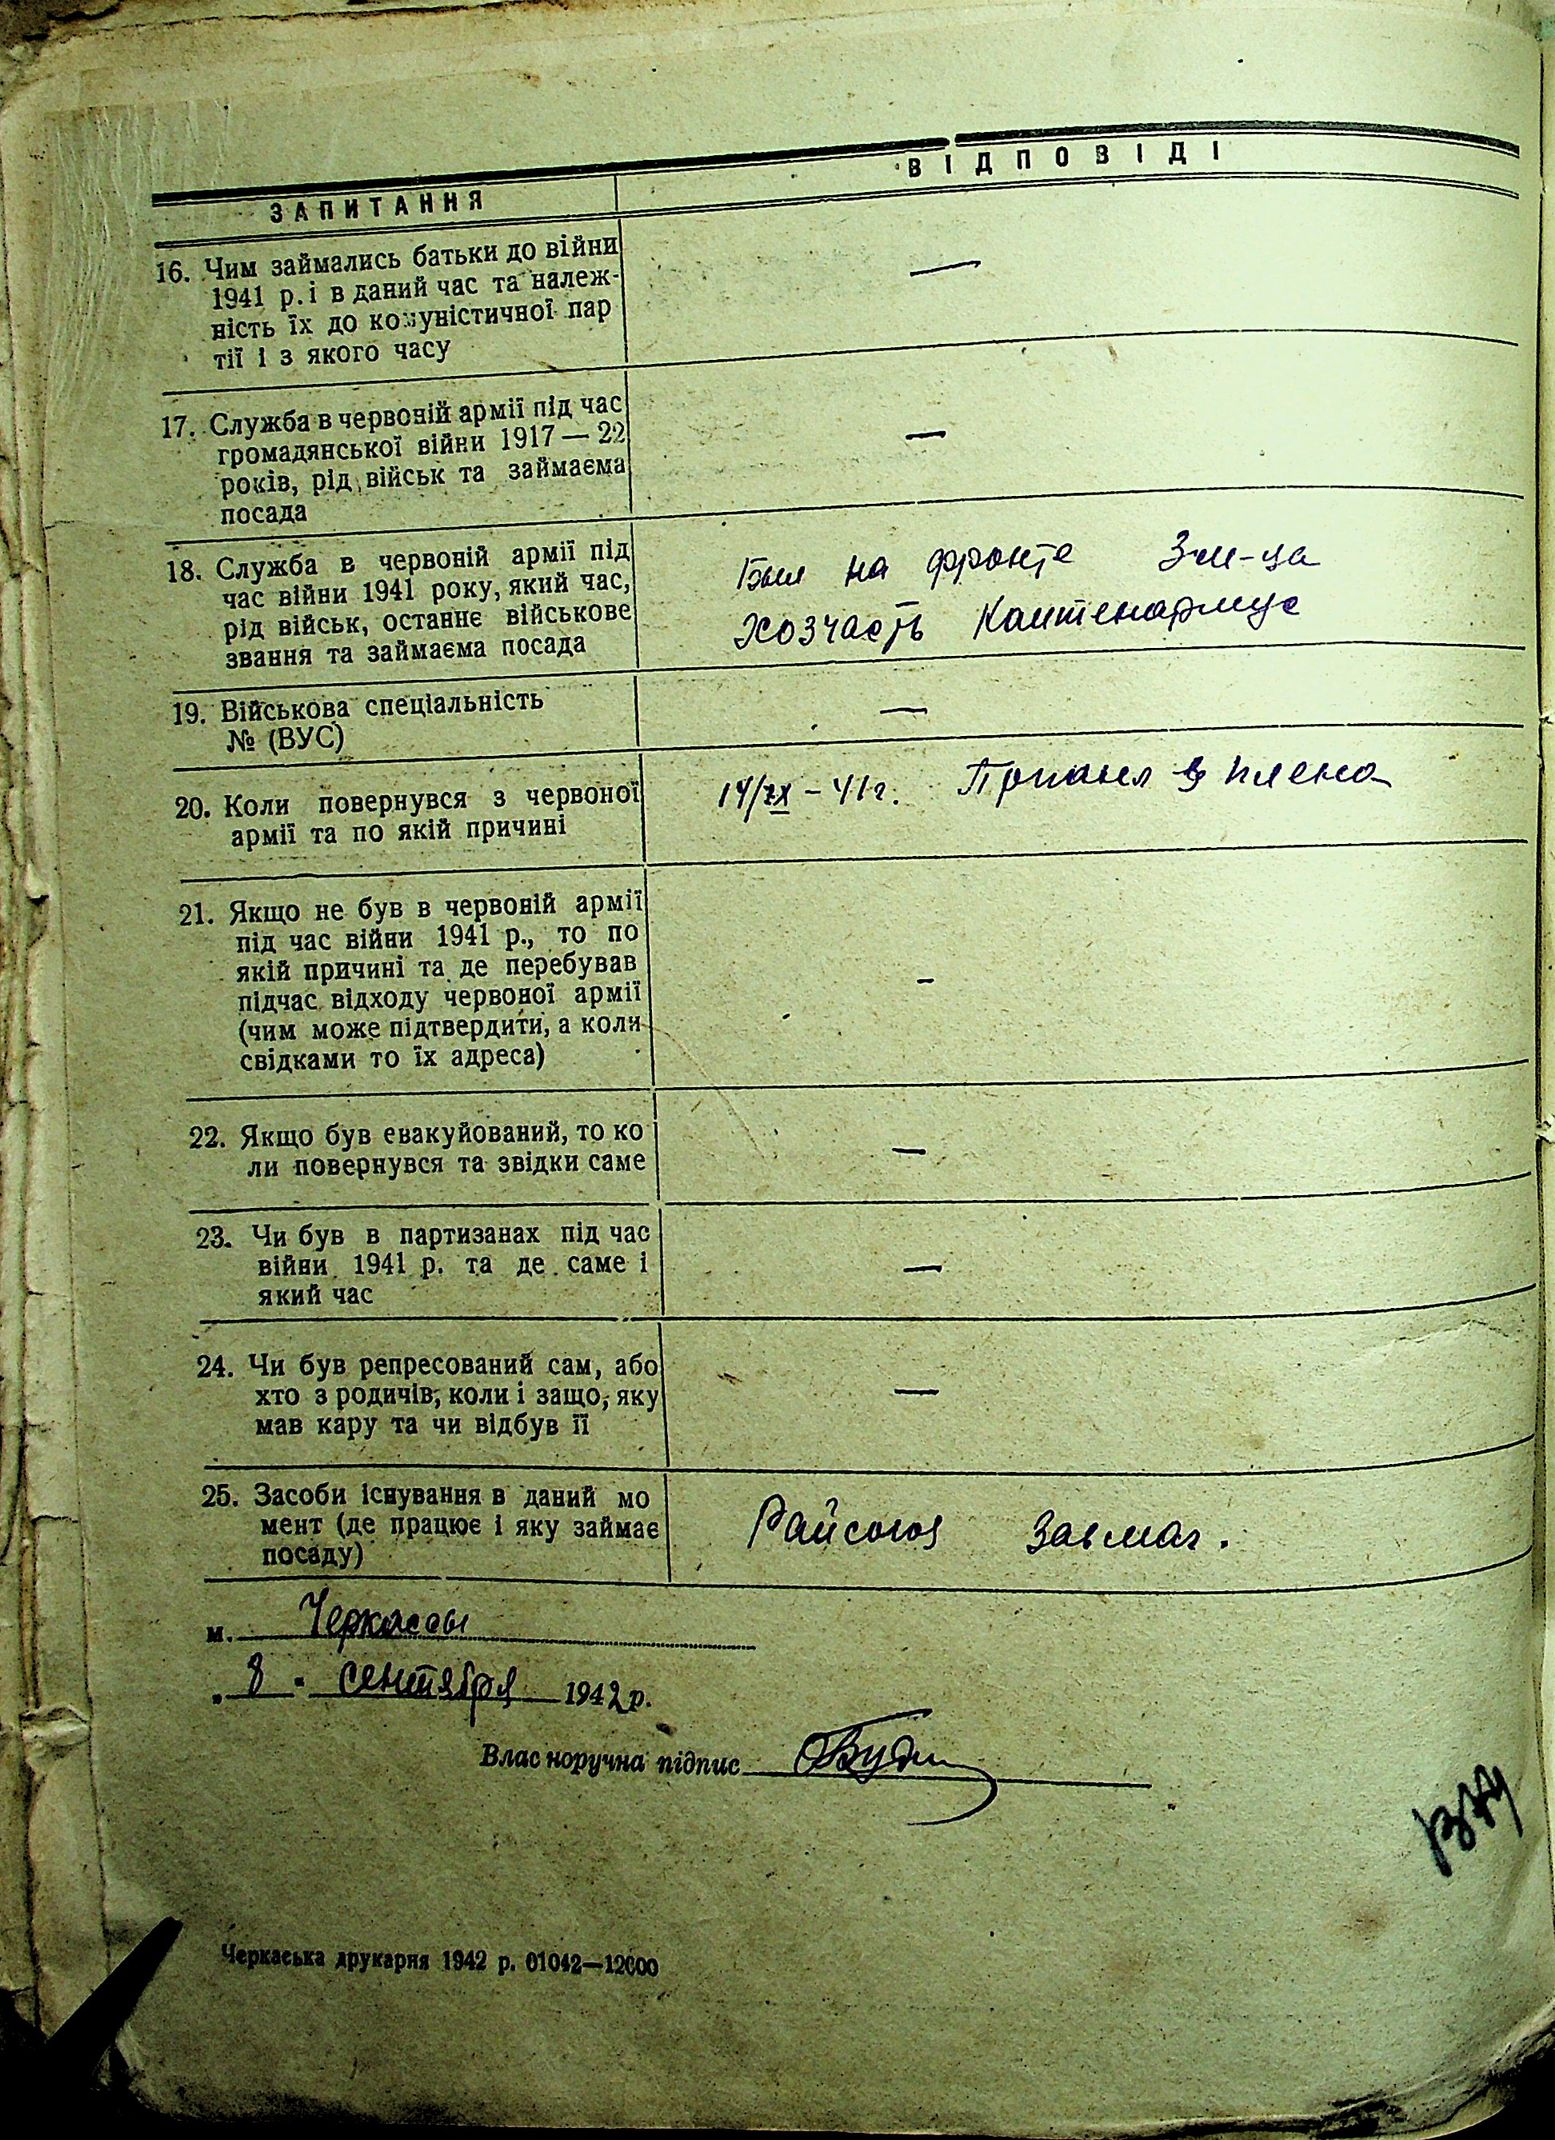 ЗАПИТАННЯ
ВІДПОВІДІ
16. Чим займались батьки до війни
1941 р. і в даний час та належ-
ність їх до комуністичної пар
тії і з якого часу
—
17. Служба в червоній армії під час
громадянської війни 1917 — 22
років, рід військ та займаєма
посада
—
18. Служба в червоній армії під
час війни 1941 року, який час,
рід військ, останнє військове
звання та займаєма посада
Был на фронте 3 м-ца
Хозчасть Каптенармус
19. Військова спеціальність
№ (ВУС)
—
20. Коли повернувся з червоної
армії та по якій причині
14/IX – 41 г. плена
21. Якщо не був в червоній армії
під час війни 1941 р., то по
якій причині та де перебував
підчас відходу червоної армії
(чим може підтвердити, а коли
свідками то їх адреса)
-
22. Якщо був евакуйований, то ко
ли повернувся та звідки саме
—
23. Чи був в партизанах під час
війни 1941 р. та де саме і
який час
—
24. Чи був репресований сам, або
хто з родичів, коли і защо, яку
мав кару та чи відбув її
—
25. Засоби існування в даний мо
мент (де працює і яку займає
посаду)
Райсоюз Завмаг.
м. Черкассы
„ 8 " сентября 1942 р.
Власноручна підпис
Черкаська друкарня 1942 р. 01042—12000